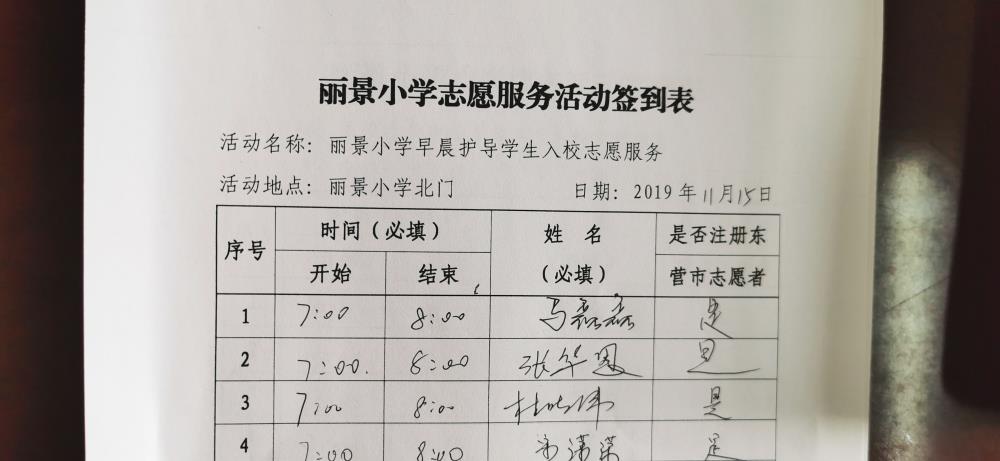 丽景小学志愿服务活动签到表
活动名称：丽景小学早晨护导学生入校志愿服务
活动地点：丽景小学北门 日期：2019年11月15日
序号 时间（必填） 姓名（必填） 是否注册东营市志愿者
开始 结束
1 7:00 8:00 马磊磊 是
2 7:00. 8:00 张华 是
3 7:00 8:00 杜晓伟 是
4 7:00 8:00 是